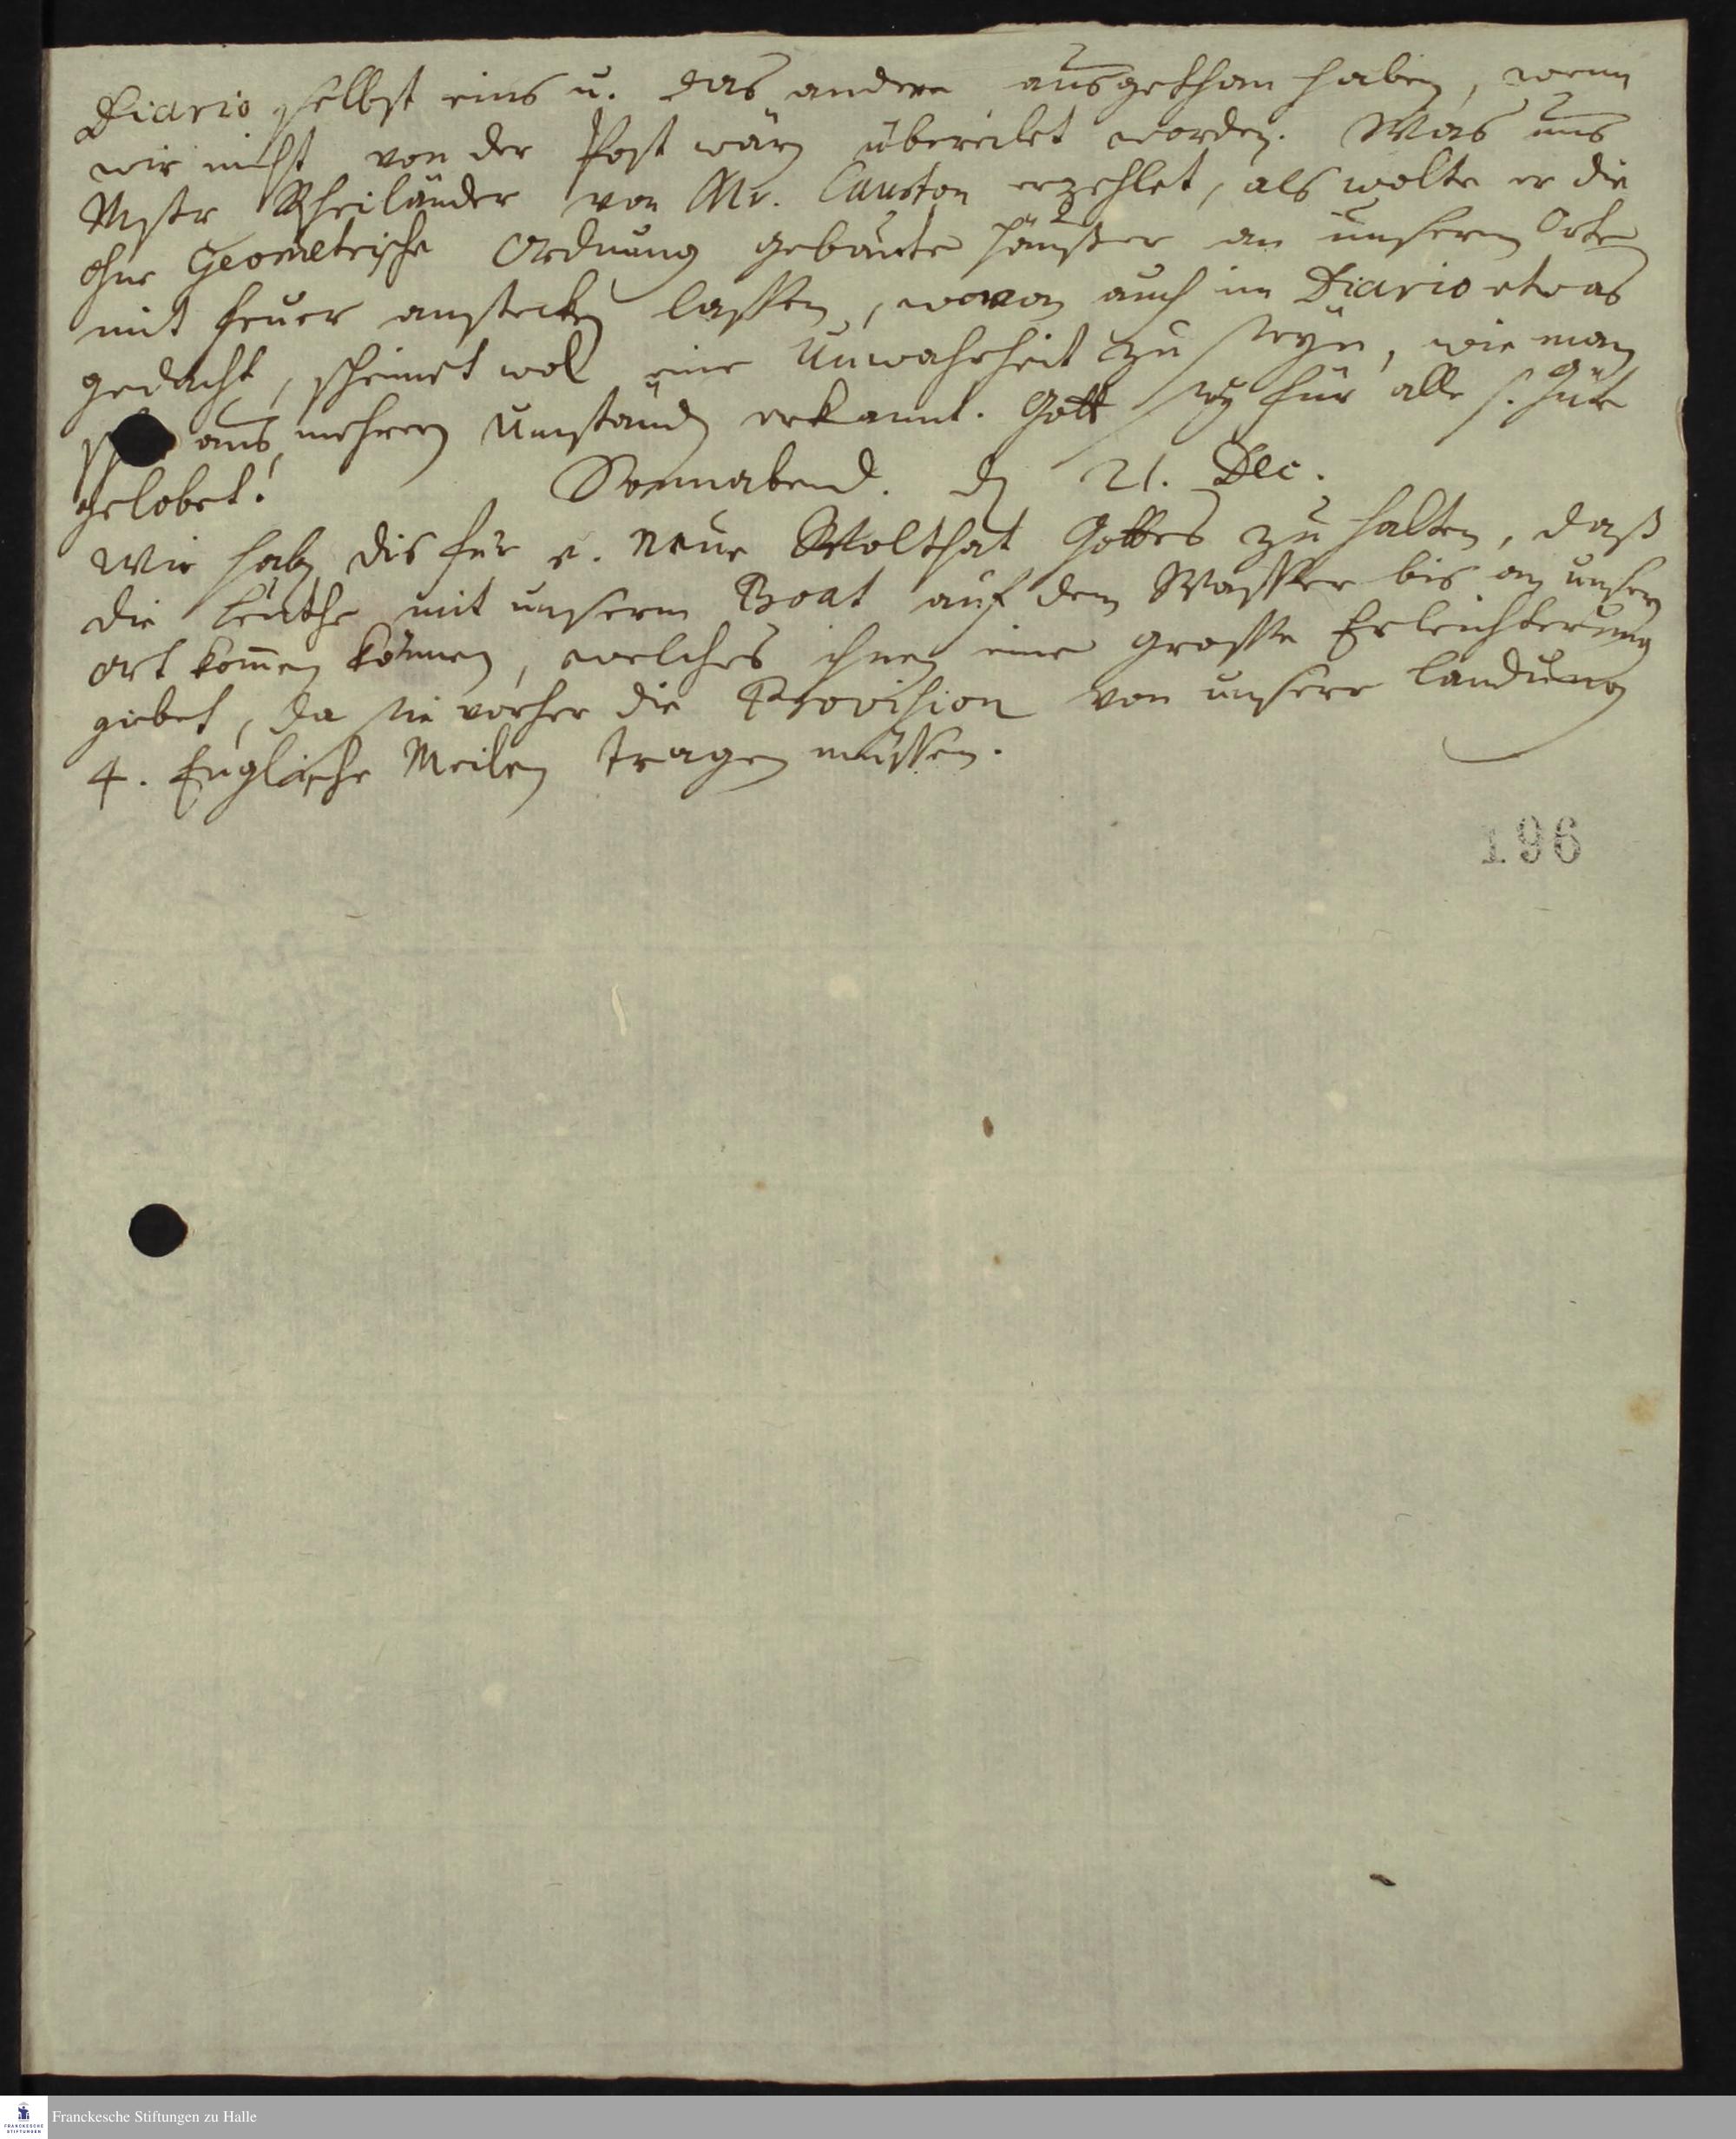 Diario selbst eins u. das andere ausgethan haben, wenn
wir nicht von der Post wärn übereilet worden. Was uns
Mstr Rheiländer von Mr. Causton erzehlet, als wolte er die
ohne Geometrische Ordnung gebaute häußer an unserm Orte
mit feuer anstecken lassen, wovon auch im Diario etwas
gedacht, scheinet wol eine Unwahrheit zu seyn, wie man
aus mehrern Umständ erkannt. Gott sey für alle s. Güte
gelobet!
Sonnabend. d 21. Dec.
Wir habn dis für e. neue Wolthat Gottes zu halten, daß
die Leuthe mit unserm Boat auf dem Wasser bis an unsern
ort kom̄en können, welches ihnen eine grosse Erleichterung
giebet, da sie vorher die Provision von unserer Landung
4. Englische Meilen tragen müssen.
196
Franckesche Stiftungen zu Halle
FRANCKESCHE
STIFTUNGEN